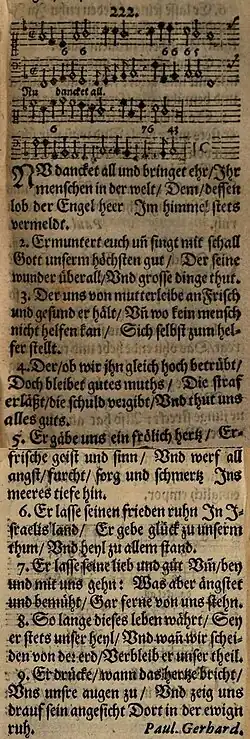 222.
6 6 6 6 6 5
Nu dancket all.
6 76 43
NUn dancket all und bringet ehr/Ihr
menschen in der welt/ Dem/dessen
lob der Engel heer Im himmel stets
vermeldt.
2. Ermuntert euch uñ singt mit schall
Gott unserm höchsten gut/ Der seine
wunder überall/Und grosse dinge thut.
3. Der uns von mutterleibe an Frisch
und gesund erhält/ Uñ wo kein mensch
nicht helfen kan/ Sich selbst zum hel-
fer stellt.
4. Der/ob wir ihn gleich hoch betrübt/
Doch bleibet gutes muths/ Die straf
erläßt/die schuld vergibt/Und thut uns
alles guts.
5. Er gäbe uns ein frölich hertz/ Er-
frische geist und sinn/ Und werf all
angst/furcht/ sorg und schmertz Ins
meeres tiefe hin.
6. Er lasse seinen frieden ruhn In I-
sraelis land/ Er gebe glück zu unserm
thun/ Und heyl zu allem stand.
7. Er lasse seine lieb und güt Um/bey
und mit uns gehn: Was aber ängstet
und bemüht/ Gar ferne von uns stehn.
8. So lange dieses leben währt/ Sey
er stets unser heyl/ Und wañ wir schei-
den von der erd/Verbleib er unser theil.
9. Er drücke/wann das hertze bricht/
Uns unsre augen zu/ Und zeig uns
drauf sein angesicht Dort in der ewign
ruh. Paul. Gerhard.